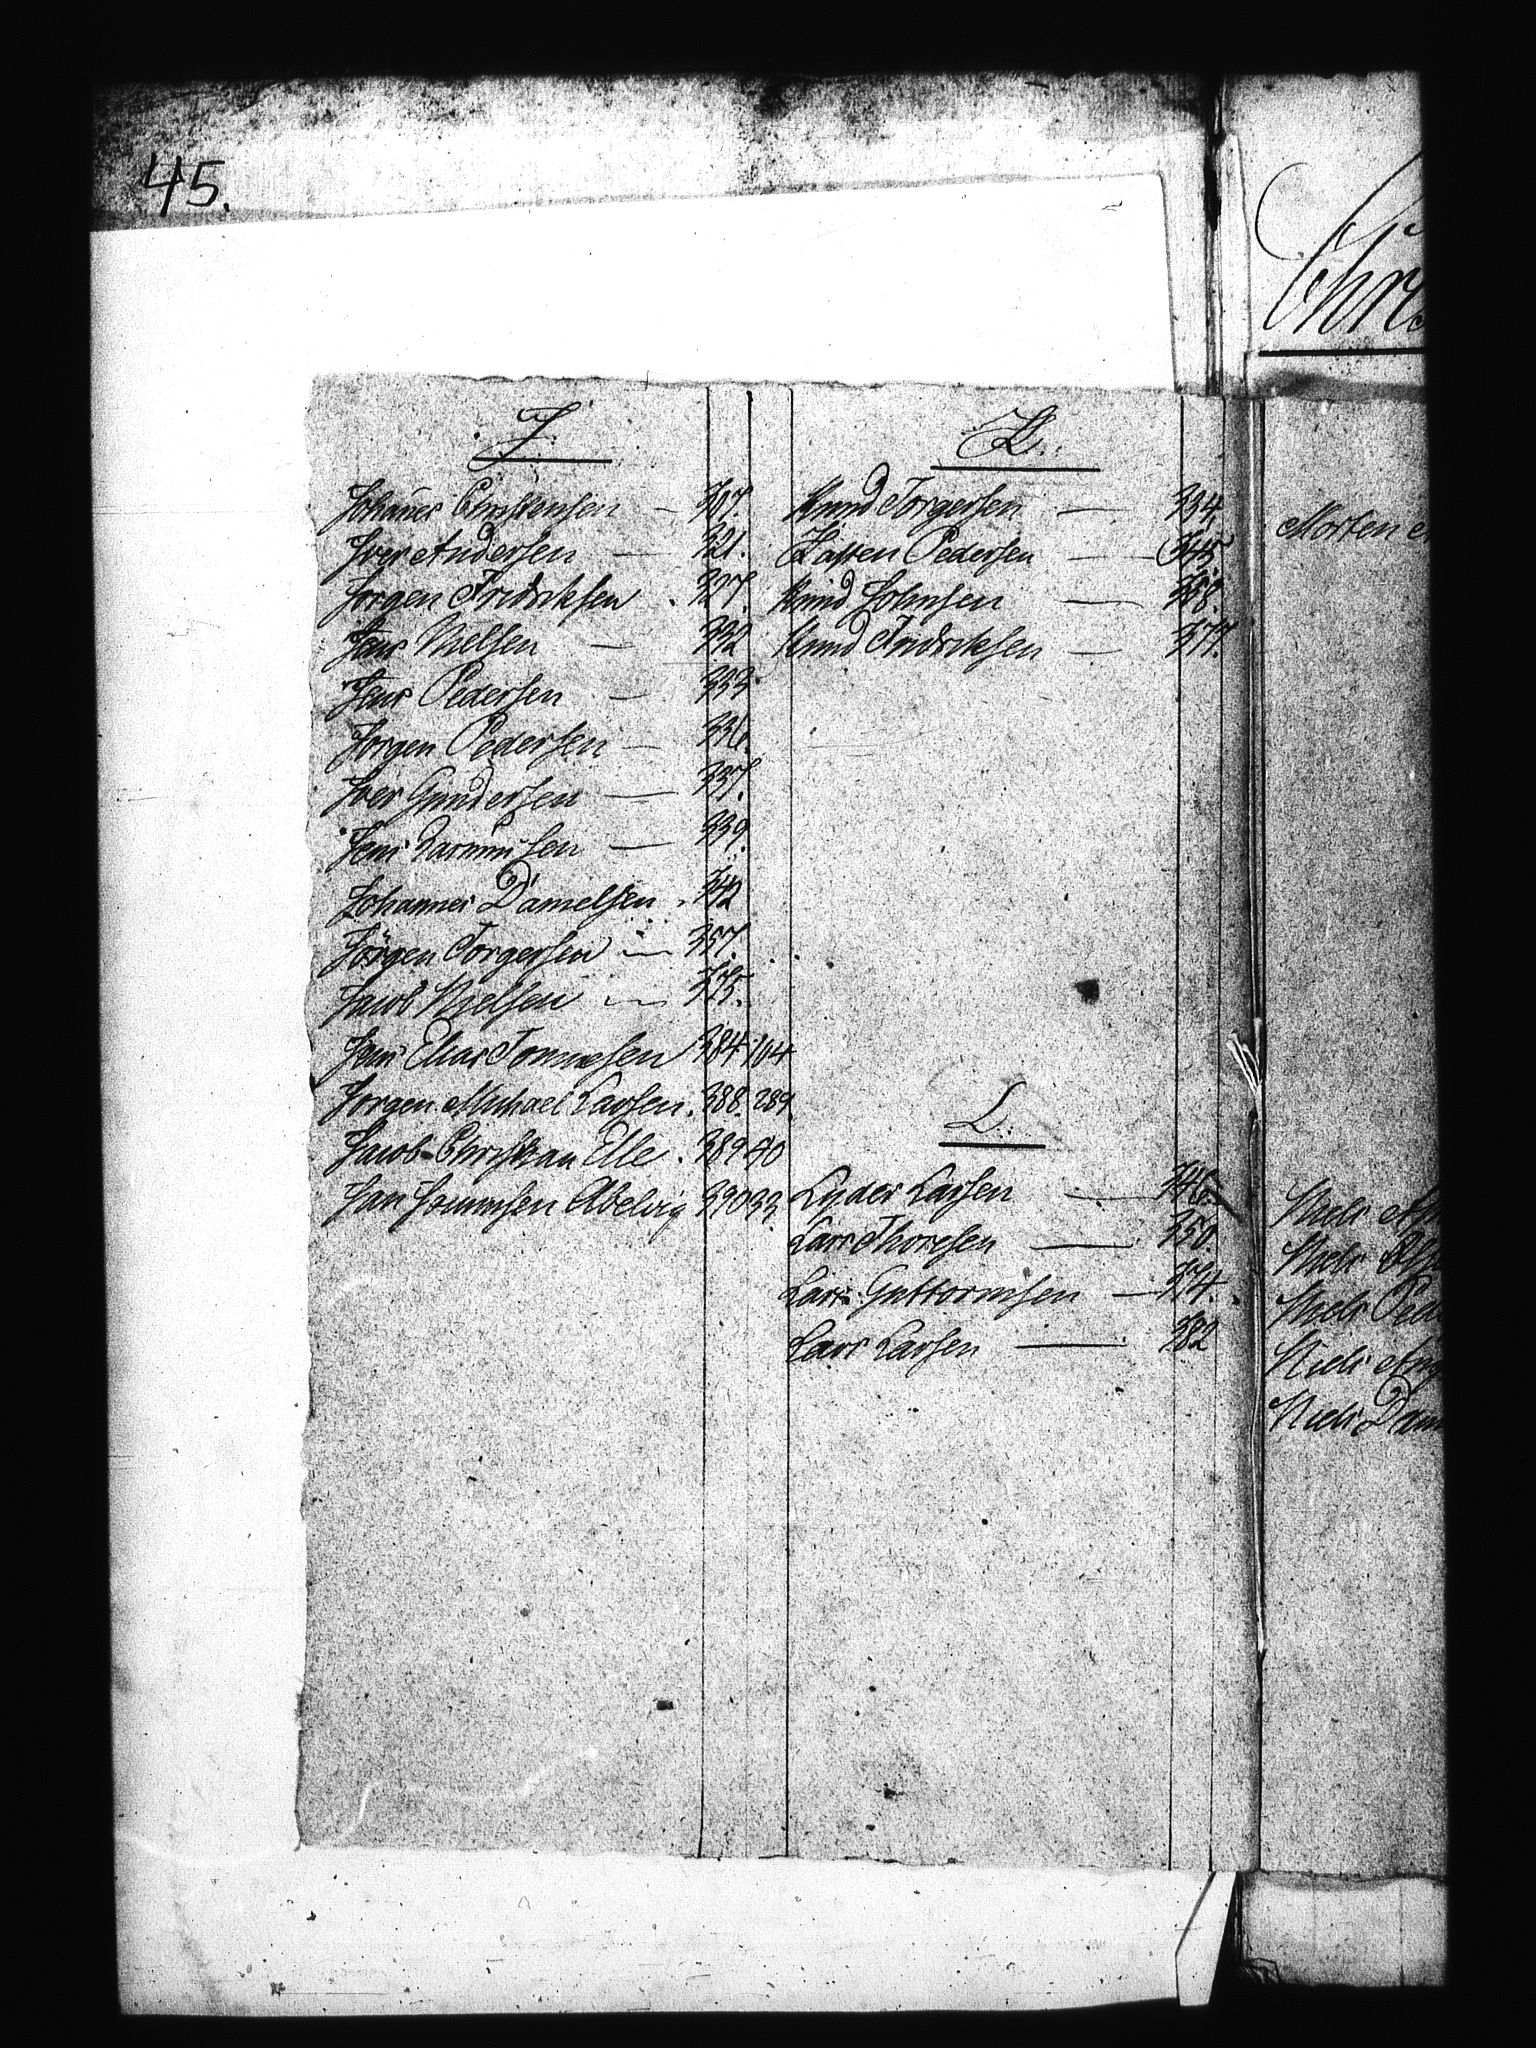 45.
J.
Johanes Christensen — 307.
Iver Andersen — 321.
Jorgen Fridriksen . 327.
Jens Nielsen — 332
Jens Pedersen — 333
Jorgen Pedersen — 336.
Iver Gundersen — 337.
Jens — 339.
Johannes Danielsen . 342
Jörgen Torgersen — 357.
Jacob Nielsen — 375.
Jens Elias Tonnesen 384 104
Jorgen Michael Larsen . 388. 289.
Jacob Christian Elle . 389 40
Jan Abelvig 390 33.
K.
Knud Torgersen — 334,
Kasten Pedersen — 345.
Knud Johnsen — 358.
Knud Fridriksen — 377.
L.
Lyder Larsen — 346.
Lars Thoresen — 350.
Lars Guttormsen — 374.
Lars Larsen — 382
Chris
Morten
Niels
Niels
Niels Ped
Niels
Niels Dani